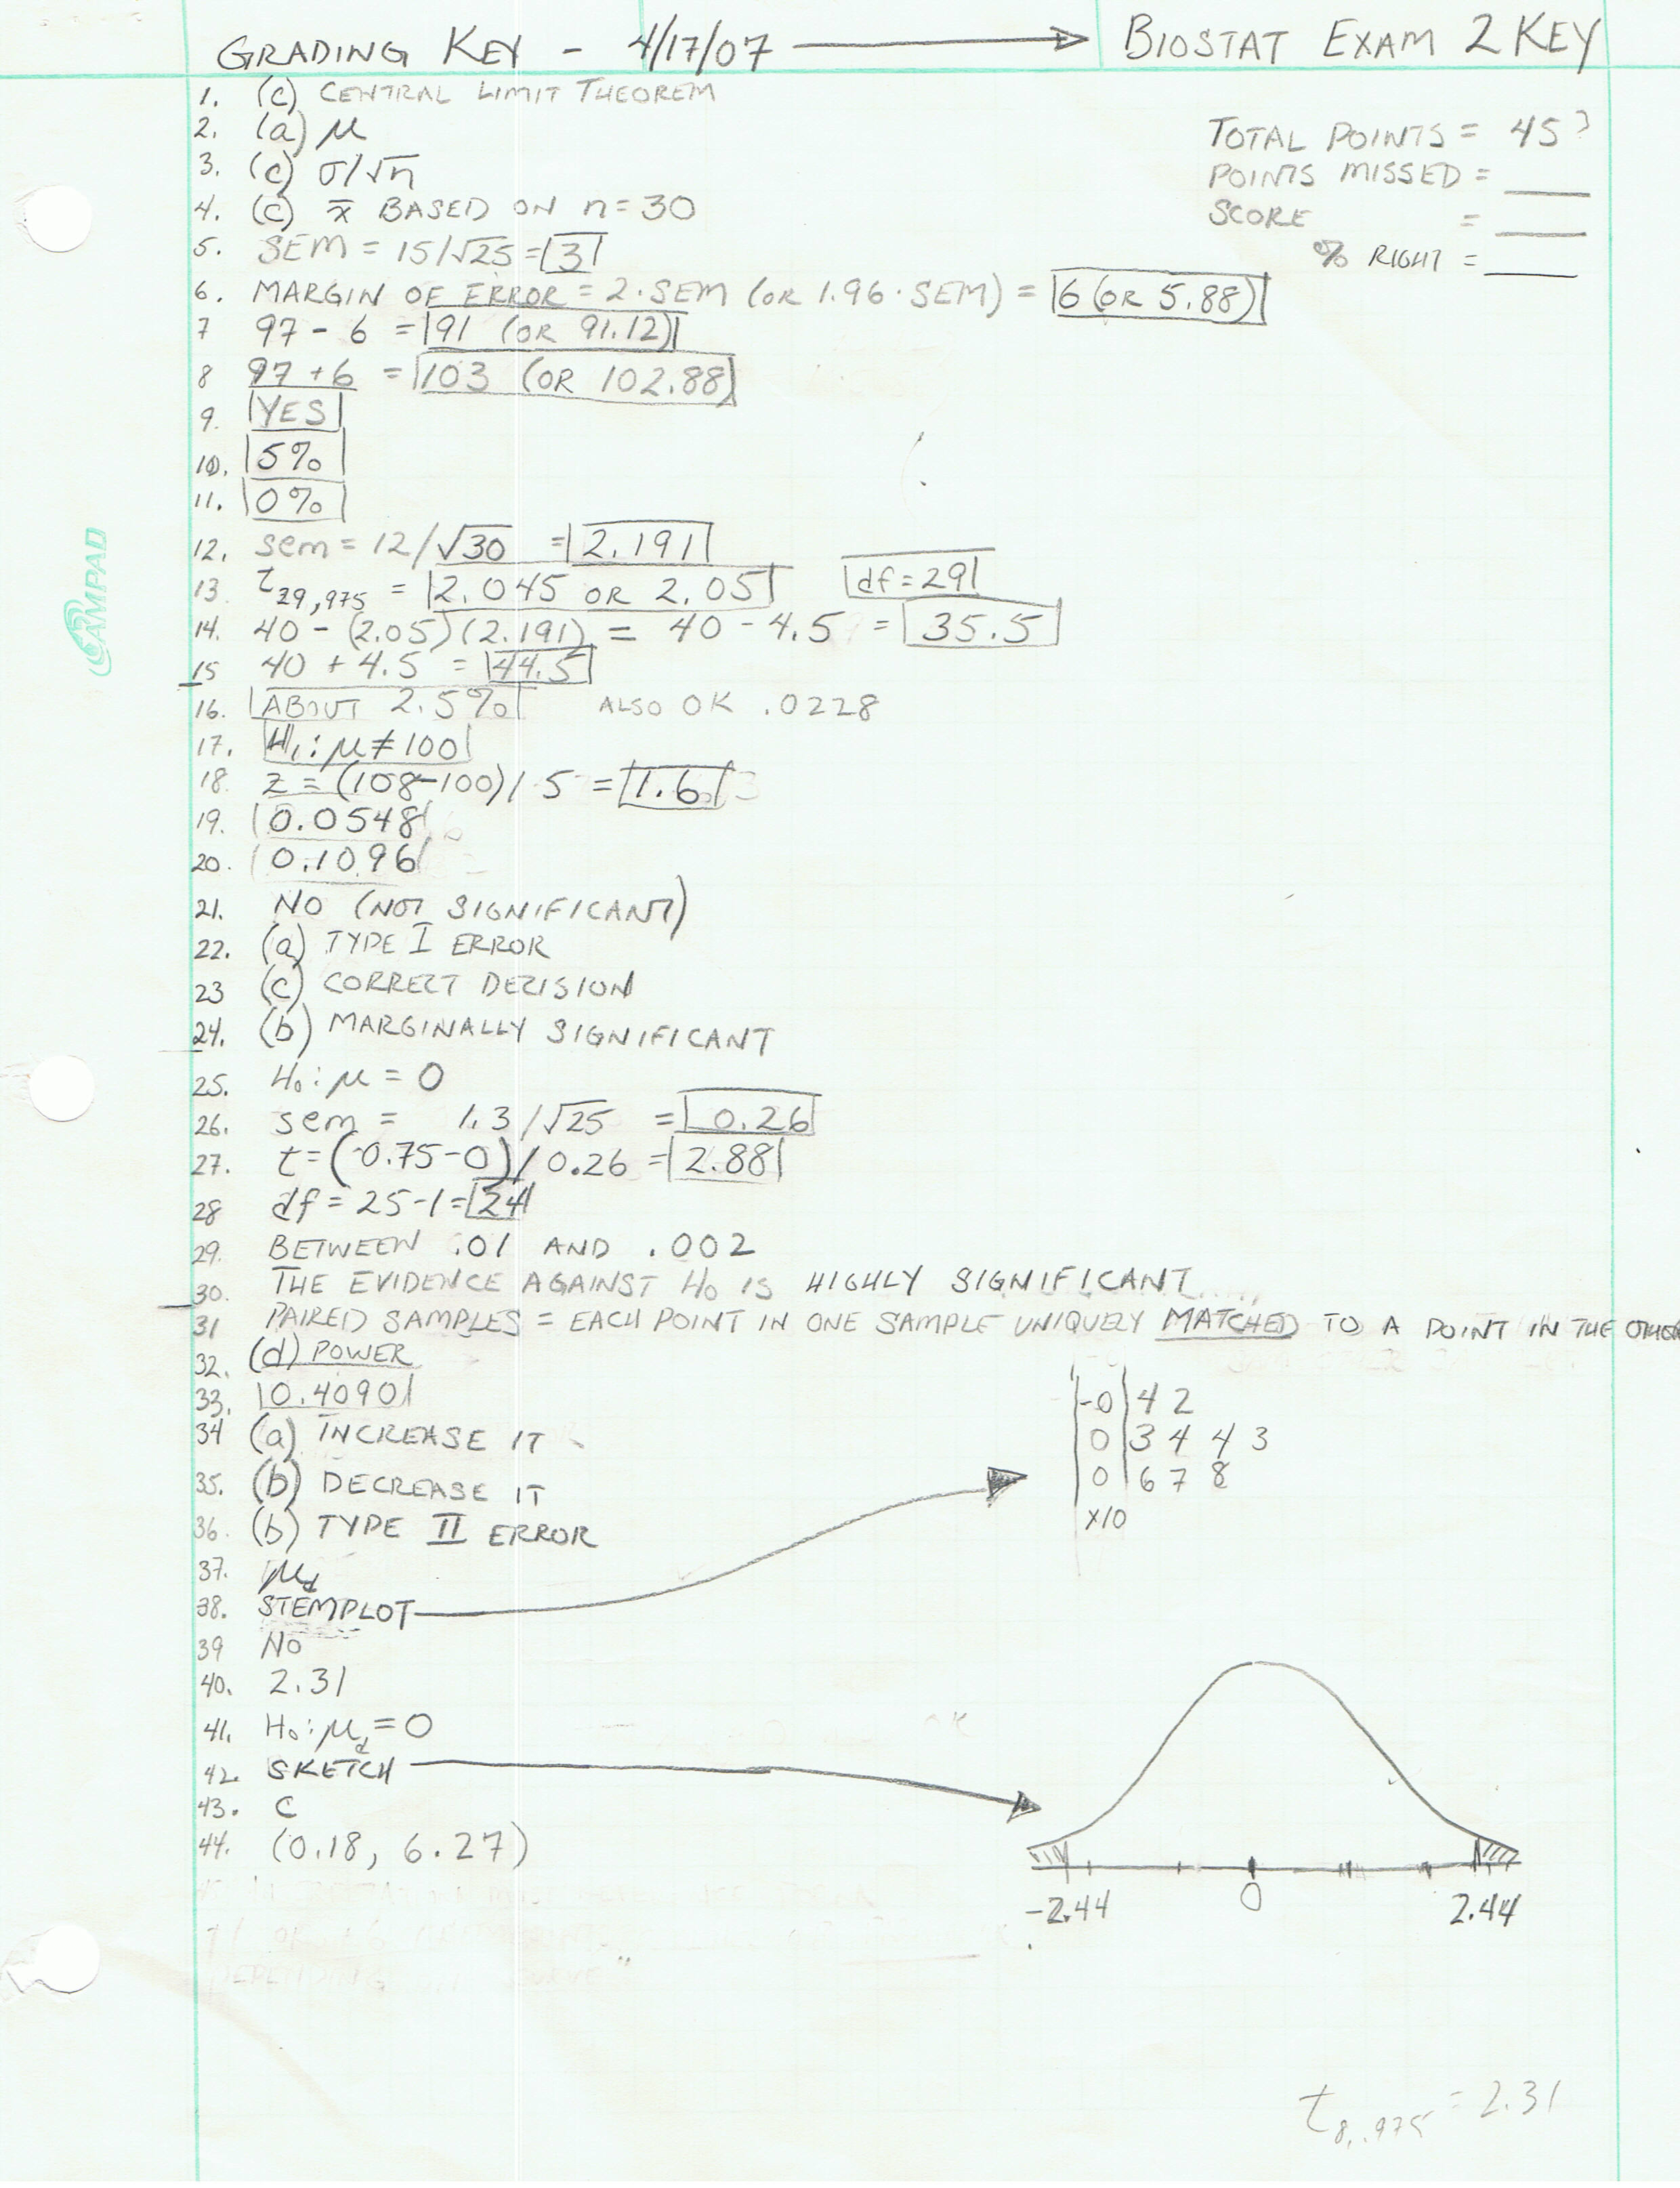 GRADING KEY - 4/17/07 → BIOSTAT EXAM 2 KEY
1. (c) CENTRAL LIMIT THEOREM
2. (a) μ
3. (c) σ/√n
4. (c) x̄ BASED ON n=30
5. SEM = 15/√25 = 3
6. MARGIN OF ERROR = 2·SEM (OR 1.96·SEM) = 6 (OR 5.88)
7 97 - 6 = 91 (OR 91.12)
8 97 + 6 = 103 (OR 102.88)
9. YES
10. 5%
11. 0%
12. sem = 12/√30 = 2.191
13. t29,975 = 2.045 OR 2.05 df=29
14. 40 - (2.05)(2.191) = 40 - 4.5 = 35.5
15 40 + 4.5 = 44.5
16. ABOUT 2.5% ALSO OK .0228
17. H₁: μ ≠ 100
18. z = (108-100)/5 = 1.6
19. 0.0548
20. 0.1096
21. NO (NOT SIGNIFICANT)
22. (a) TYPE I ERROR
23 (c) CORRECT DECISION
24. (b) MARGINALLY SIGNIFICANT
25. H₀: μ = 0
26. sem = 1.3/√25 = 0.26
27. t = (-0.75-0)/0.26 = 2.88
28 df = 25-1 = 24
29. BETWEEN .01 AND .002
30. THE EVIDENCE AGAINST H₀ IS HIGHLY SIGNIFICANT
31 PAIRED SAMPLES = EACH POINT IN ONE SAMPLE UNIQUELY MATCHED TO A POINT IN THE OTHER
32. (d) POWER
33. 0.4090
34 (a) INCREASE IT
35. (b) DECREASE IT
36. (b) TYPE II ERROR
37. μd
38. STEMPLOT
39 NO
40. 2.31
41. H₀: μd = 0
42. SKETCH
43. C
44. (0.18, 6.27)
TOTAL POINTS = 45?
POINTS MISSED = ____
SCORE = ____
% RIGHT = ____
-0|4 2
0|3 4 4 3
0|6 7 8
x10
-2.44 0 2.44
t8,.975 = 2.31
AMPAD